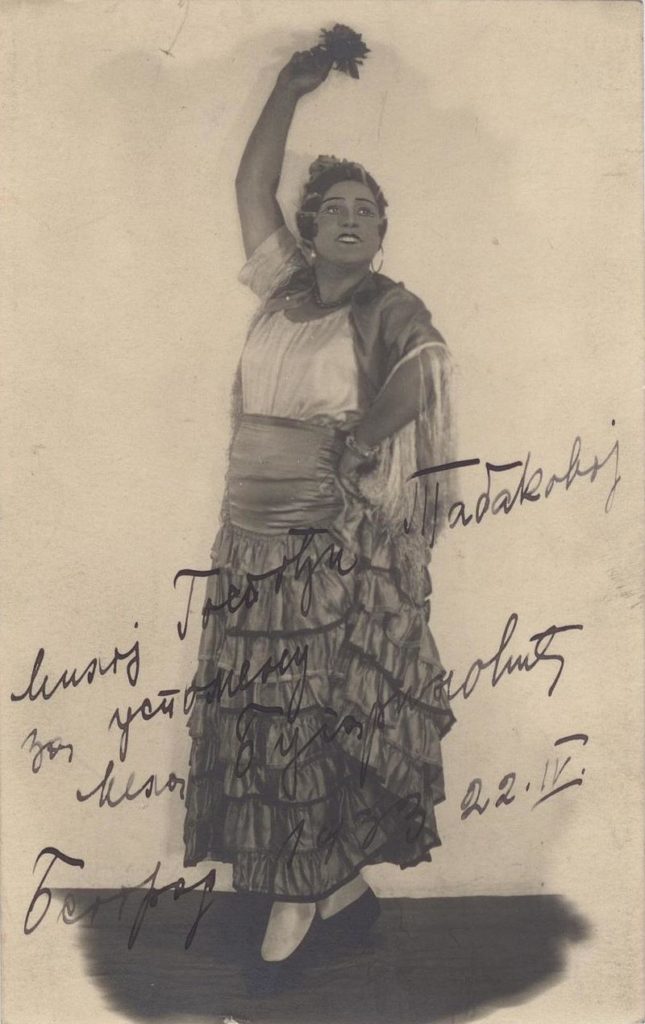 Милој Госпођи Табаковој
за успомену
Мела Бугариновић
Београд 1933 22.IV.